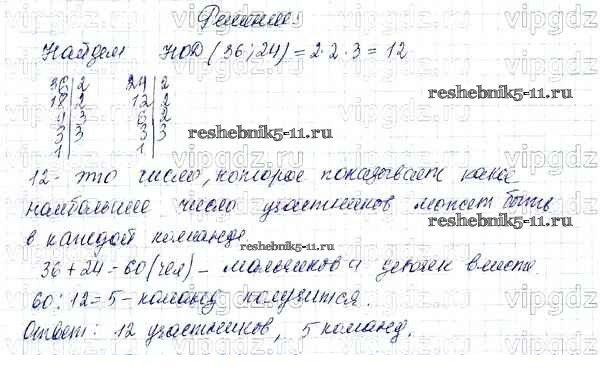 Решение.
Найдем НОД (36; 24) = 2·2·3 = 12
36|2 24|2
18|2 12|2
9|3 6|2
3|3 3|3
1| 1|
reshebnik5-11.ru
reshebnik5-11.ru
12 - это число, которое показывает какое
наибольшее число участников может быть
reshebnik5-11.ru
в каждой команде.
reshebnik5-11.ru
36 + 24 = 60 (чел) – мальчиков и девочек вместе.
60 : 12 = 5 - команд получится.
Ответ: 12 участников, 5 команд.
reshebnik5-11.ru